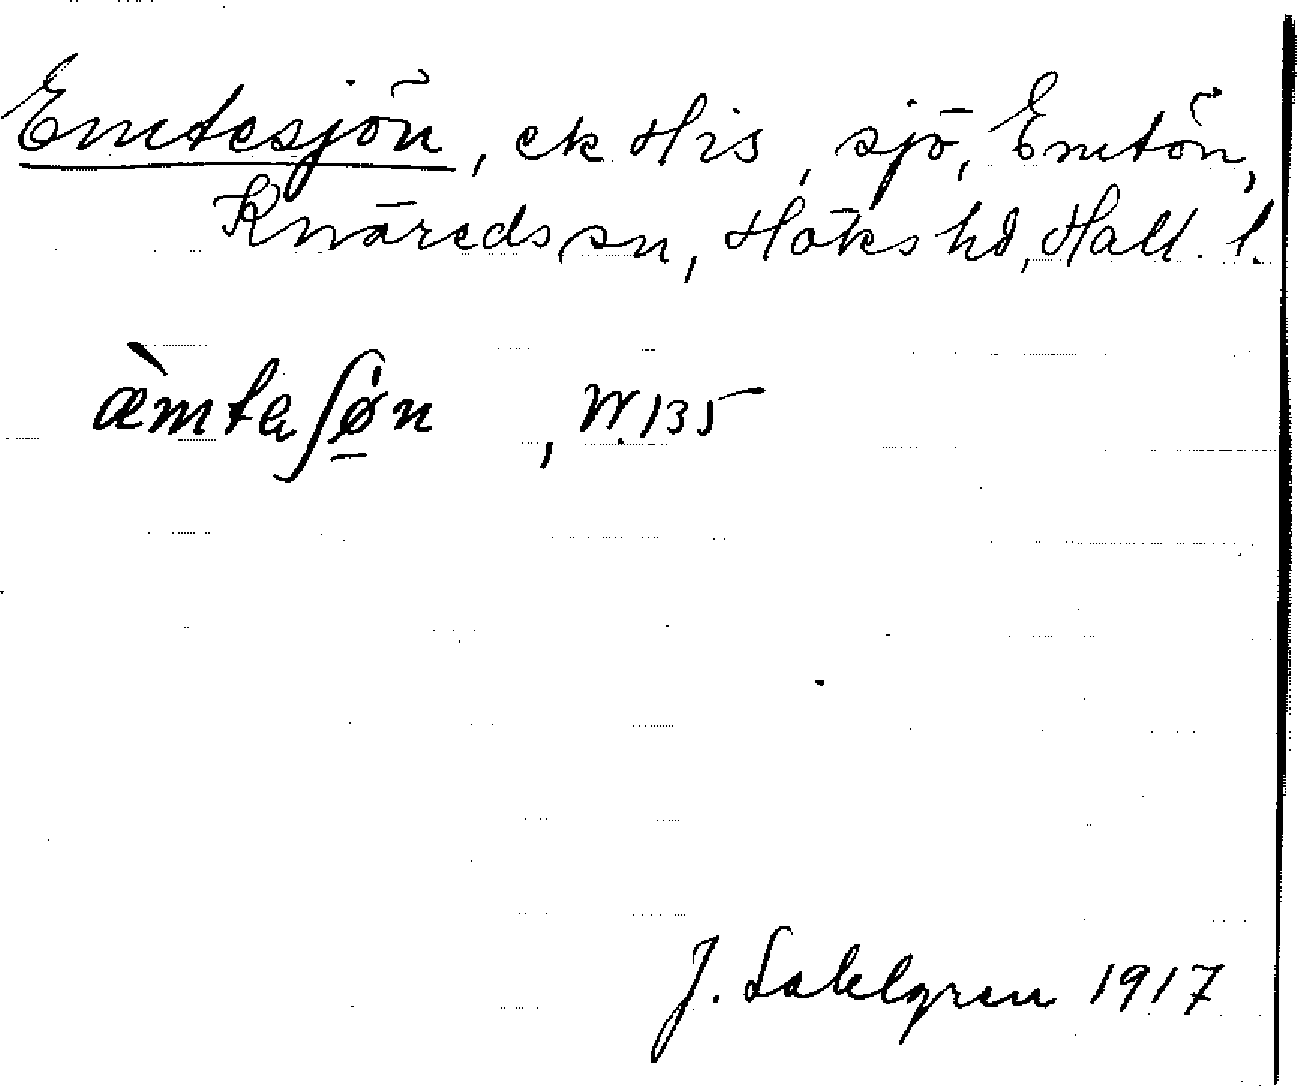 Emtesjön, ek His, sjö, Emtön,
Knäreds sn, Höks hd, Hall. l.
æ̀mtaʃøn, W.135
J. Sahlgren 1917